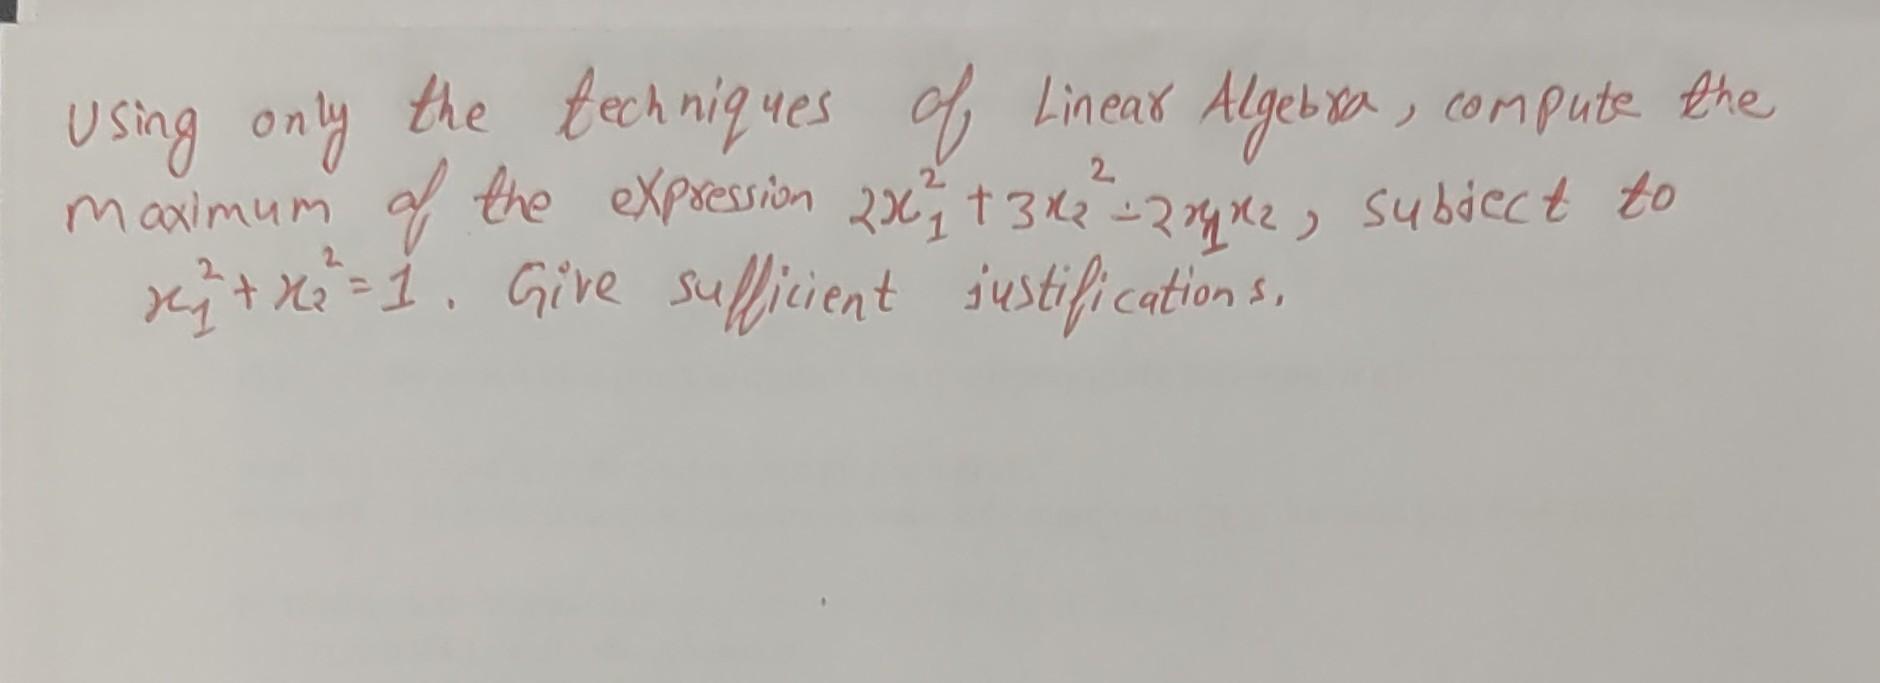 Using only the techniques of Linear Algebra, compute the
maximum of the expression 2x₁² + 3x₂² - 2x₁x₂, subject to
x₁² + x₂² = 1. Give sufficient justifications.